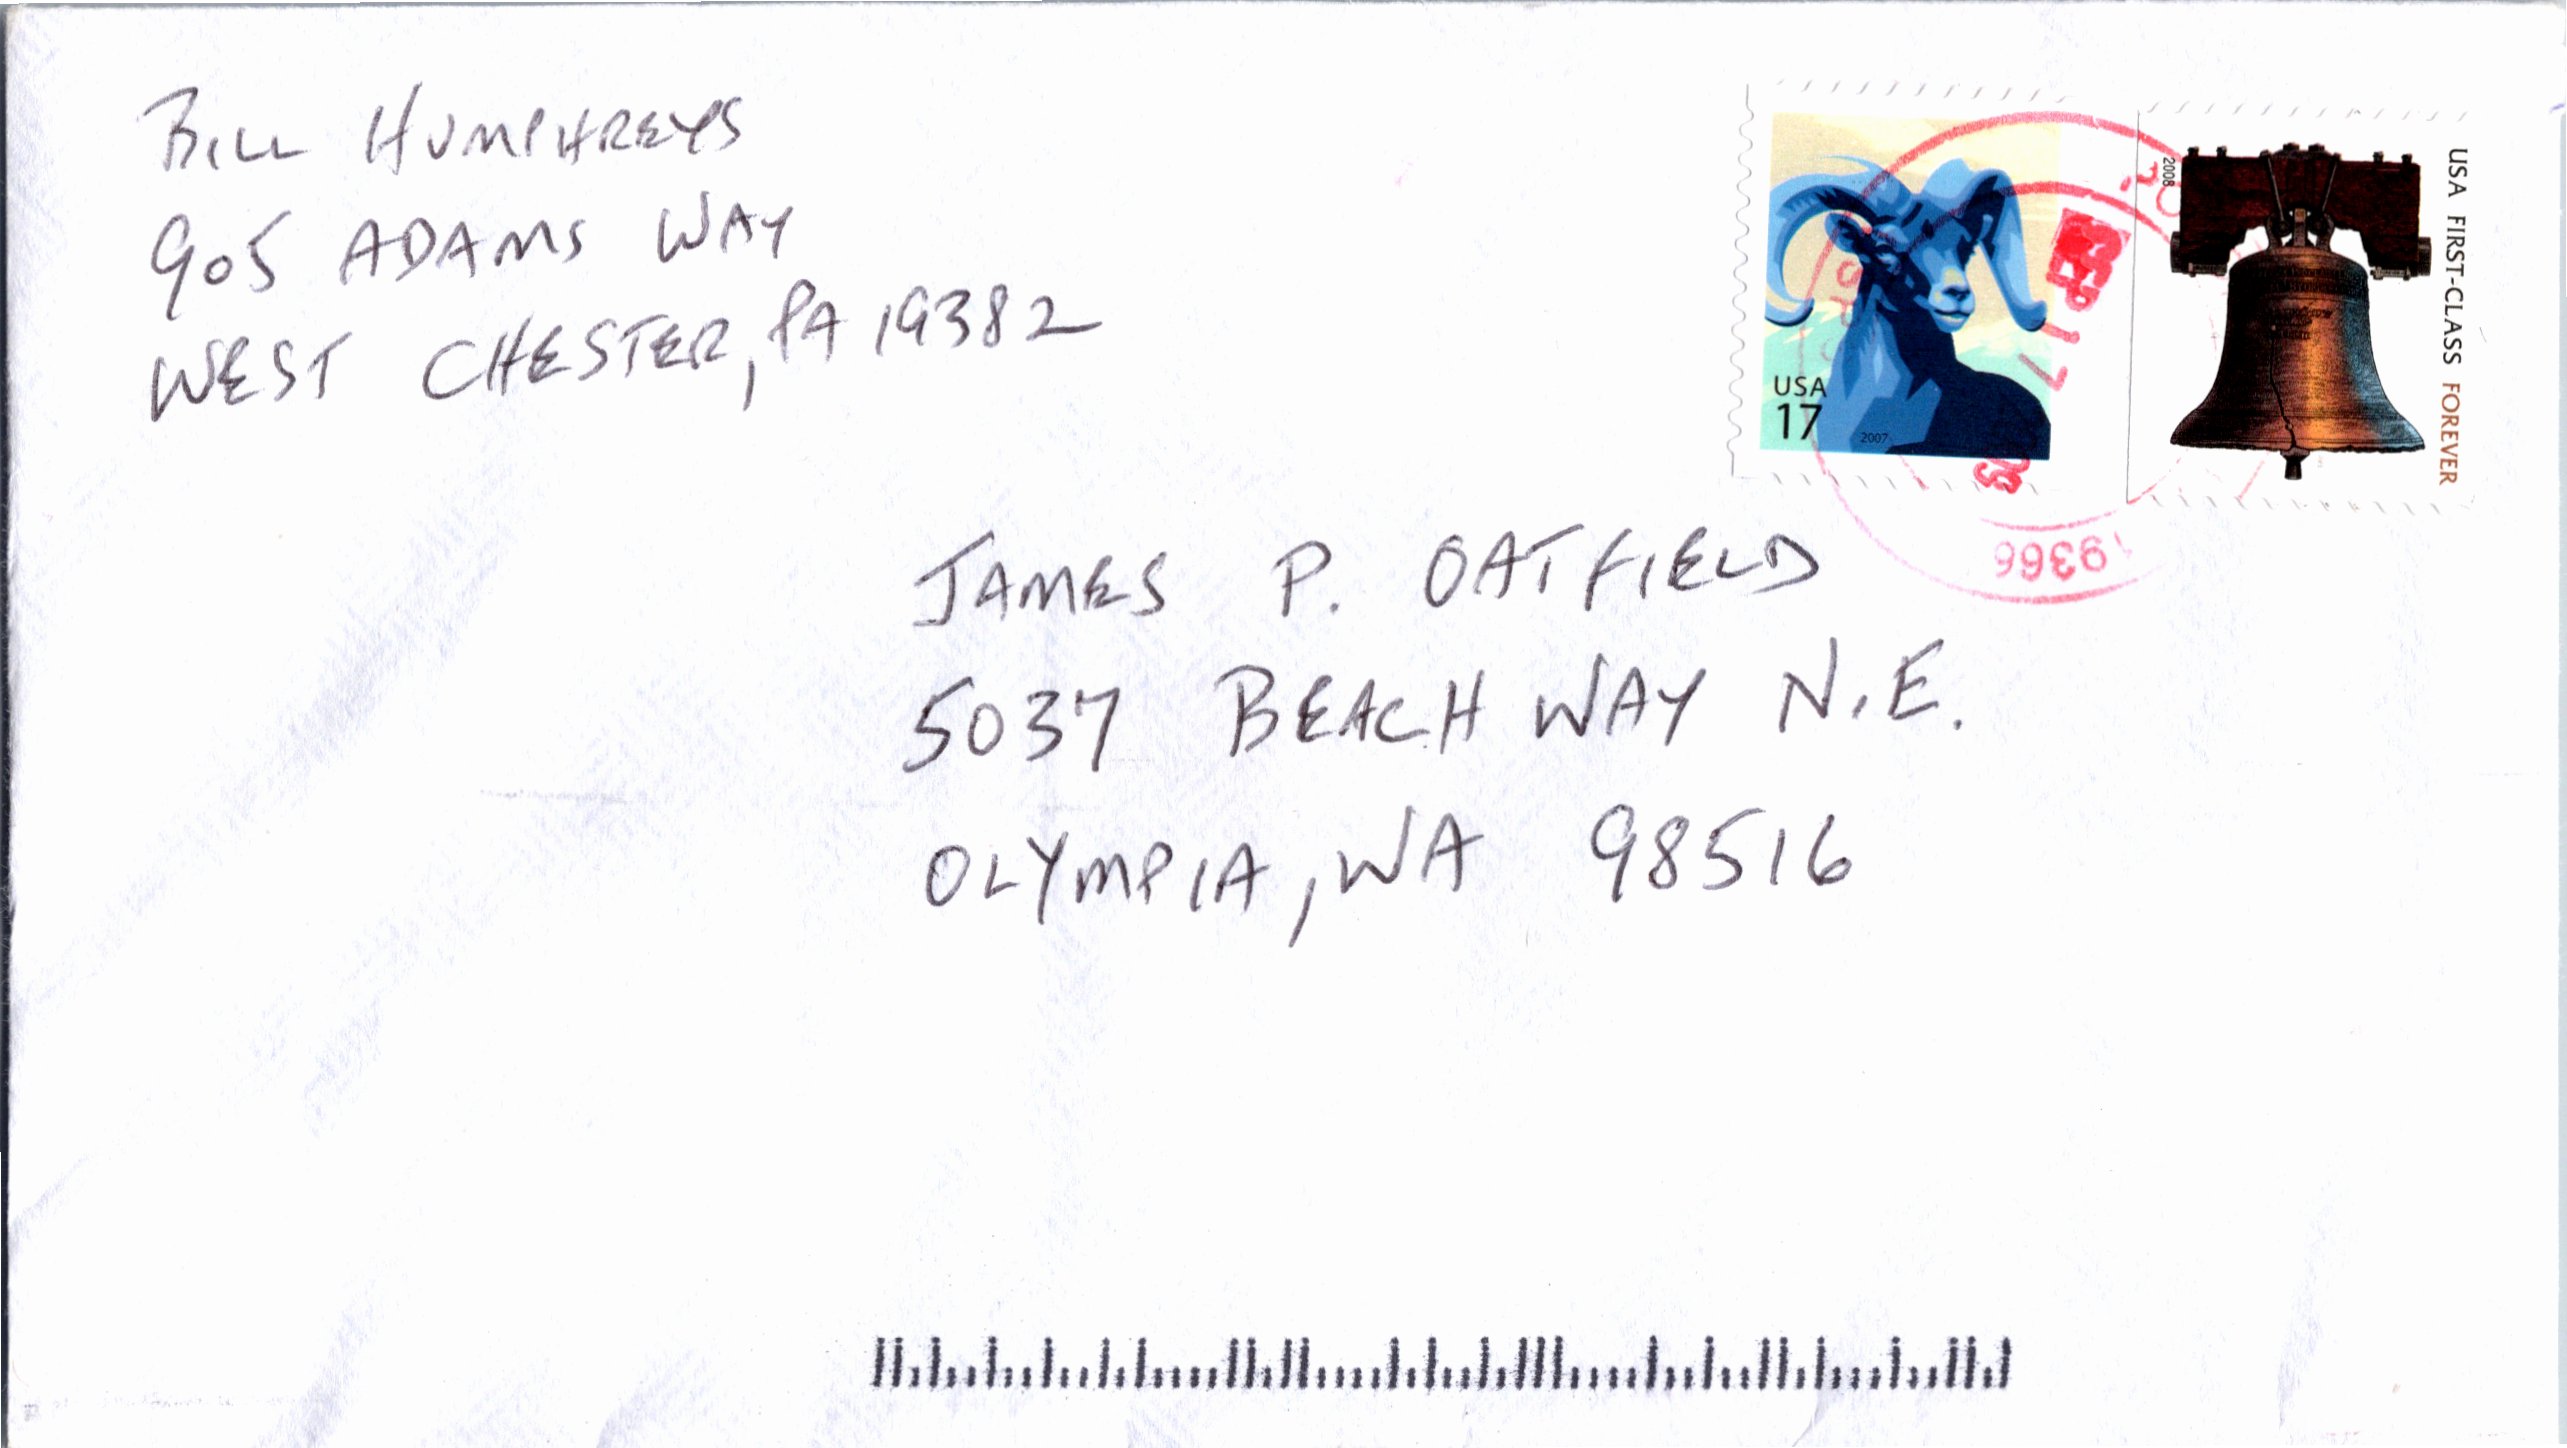 BILL HUMPHREYS
905 ADAMS WAY
WEST CHESTER, PA 19382
USA
17
2007
2008
USA FIRST-CLASS FOREVER
19366
JAMES P. OATFIELD
5037 BEACH WAY N.E.
OLYMPIA, WA 98516